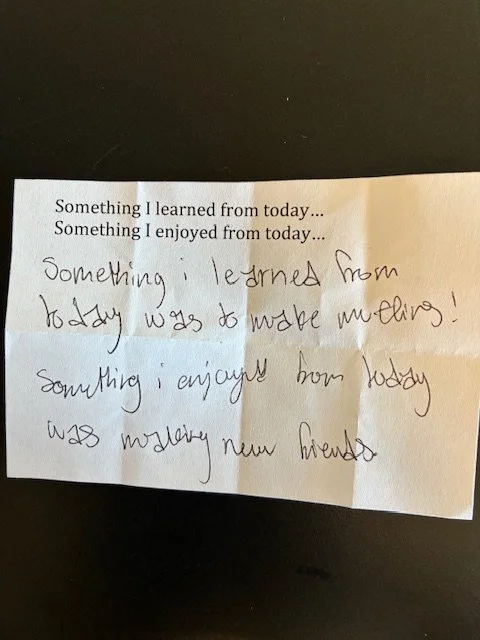 Something I learned from today...
Something I enjoyed from today...
Something i learned from
today was to make muffins!
Something i enjoyed from today
was making new friends.